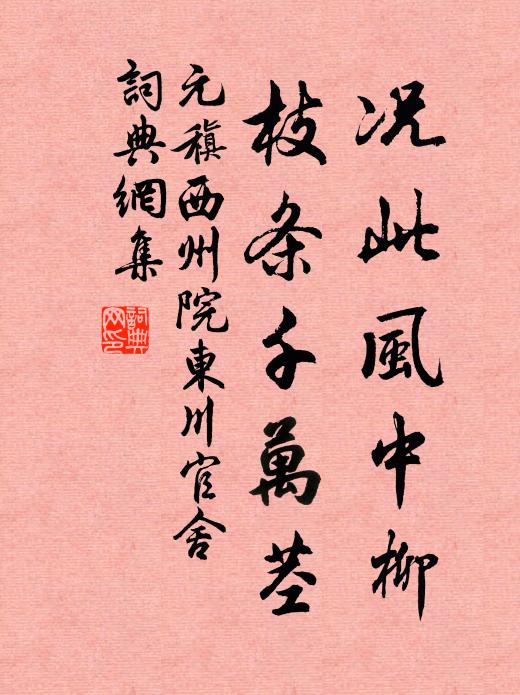 况此風中柳
枝条千萬茎
元稹西州院東川官舍
詞典網集
詞典網印